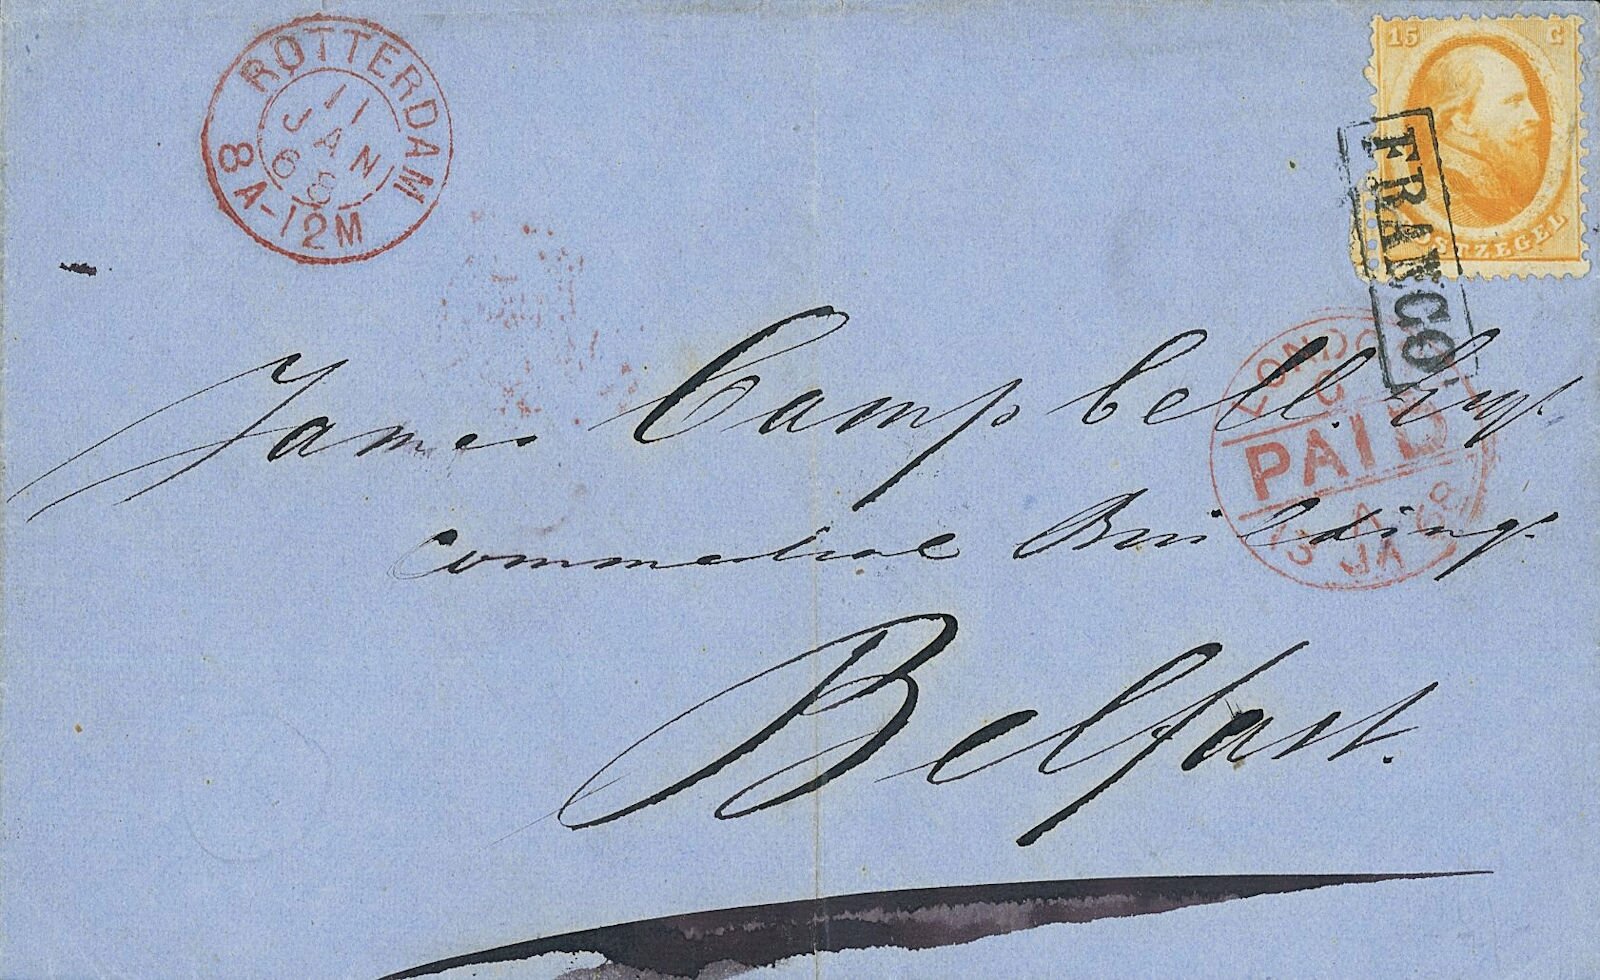 ROTTERDAM
11
JAN
68
8 A-12M
15 C
POSTZEGEL
FRANCO
James Campbell Esqr.
Commercial Buildings.
Belfast.
LONDON
PAID
A
13 JA 68